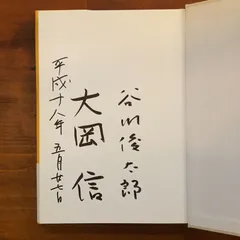 谷川俊太郎
大岡信
平成十八年 五月廿七日